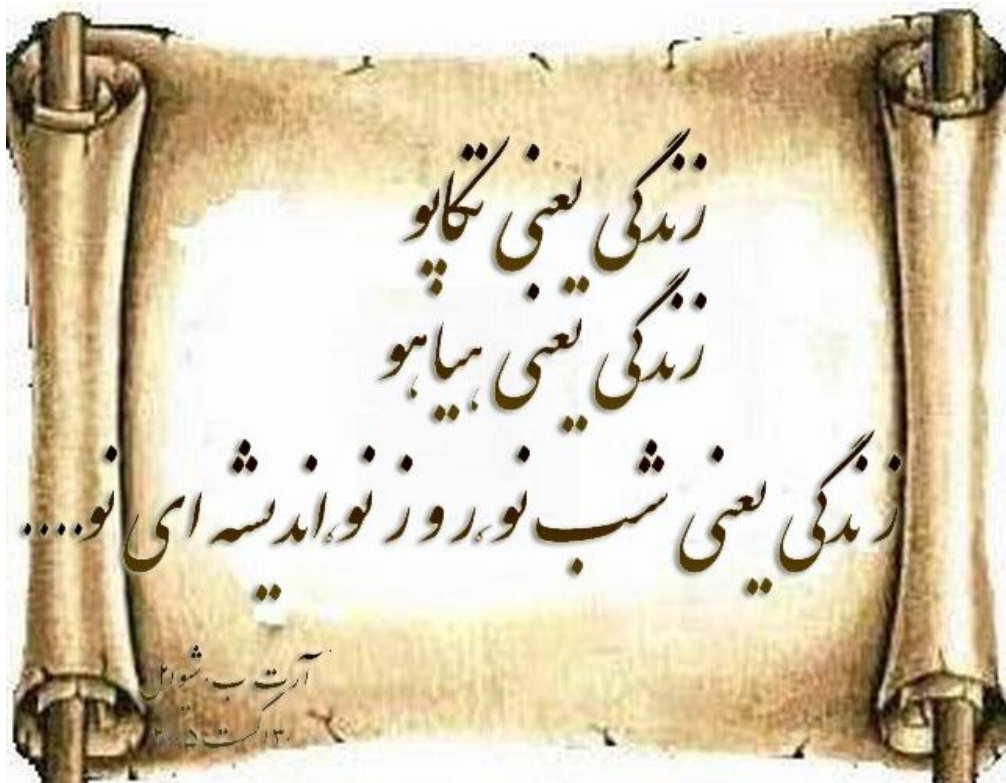 زندگی یعنی تکاپو
زندگی یعنی هیاهو
زندگی یعنی شب نو،روز نو،اندیشه ای نو....
آرت ب.
۳۰ اگست